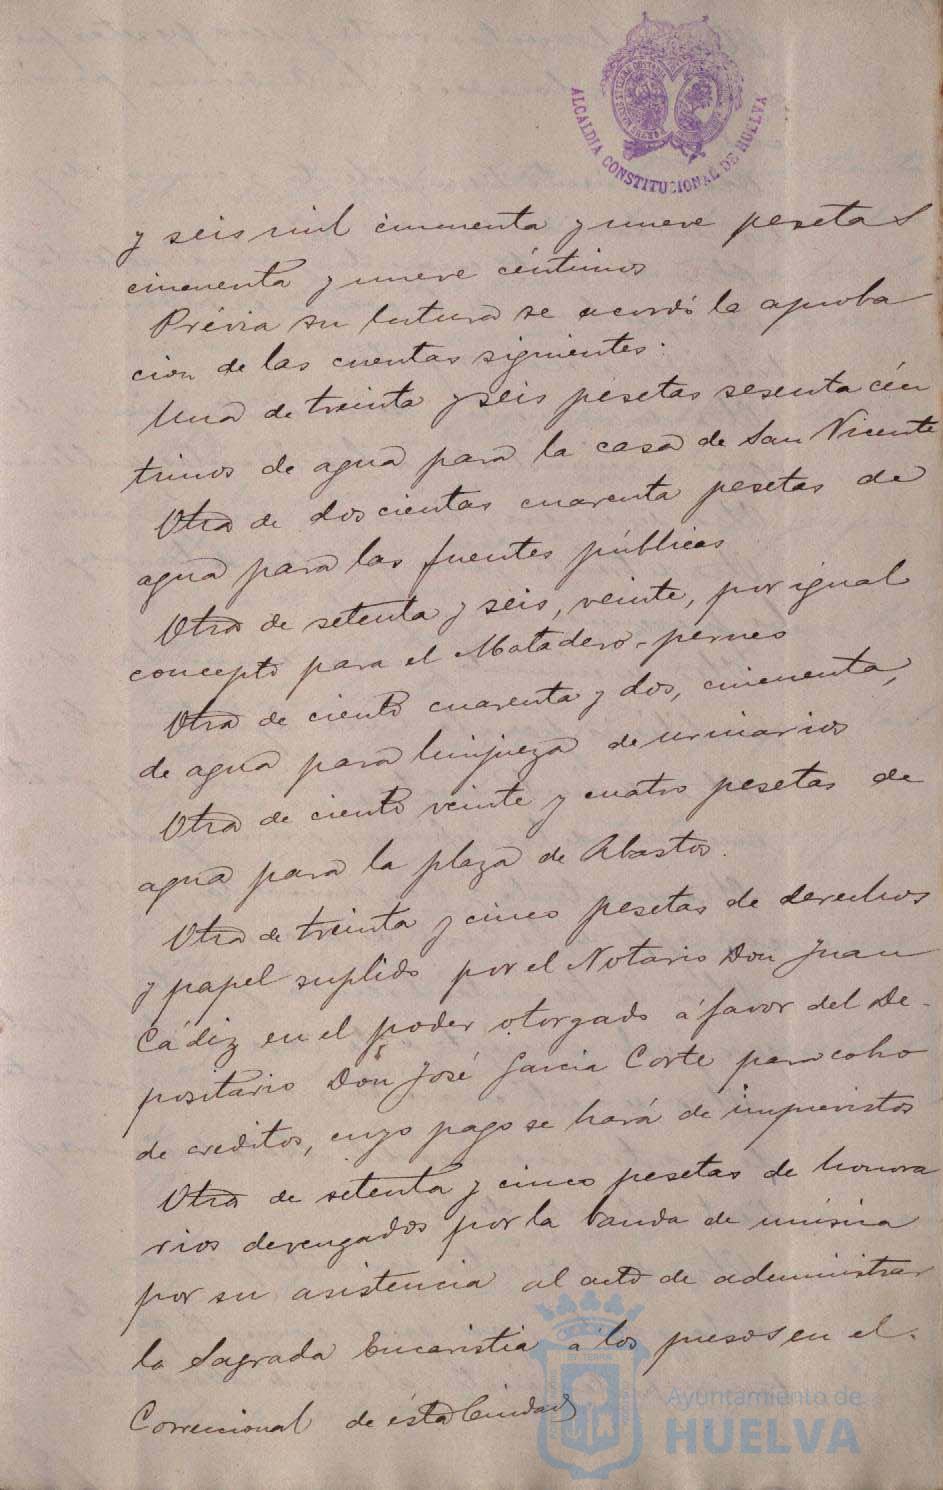 ALCALDIA CONSTITUCIONAL DE HUELVA
y seis mil cincuenta y nueve pesetas
cincuenta y nueve céntimos
Prévia su lectura se acordó la aproba
cion de las cuentas siguientes:
Una de treinta y seis pesetas sesenta cén
timos de agua para la casa de San Vicente
Otra de doscientas cuarenta pesetas de
agua para las fuentes públicas
Otra de setenta y seis, veinte, por igual
concepto para el Matadero-perneo
Otra de ciento cuarenta y dos, cincuenta,
de agua para limpieza de urinarios
Otra de ciento veinte y cuatro pesetas de
agua para la plaza de Abastos.
Otra de treinta y cinco pesetas de derechos
y papel suplido por el Notario Don Juan
Cádiz en el poder otorgado á favor del De-
positario Don José Garcia Corte para cobro
de creditos, cuyo pago se hará de imprevistos
Otra de setenta y cinco pesetas de honora
rios devengados por la banda de música
por su asistencia al acto de administrar
la Sagrada Eucaristia á los presos en el
Correccional de ésta Ciudad
Ayuntamiento de
HUELVA